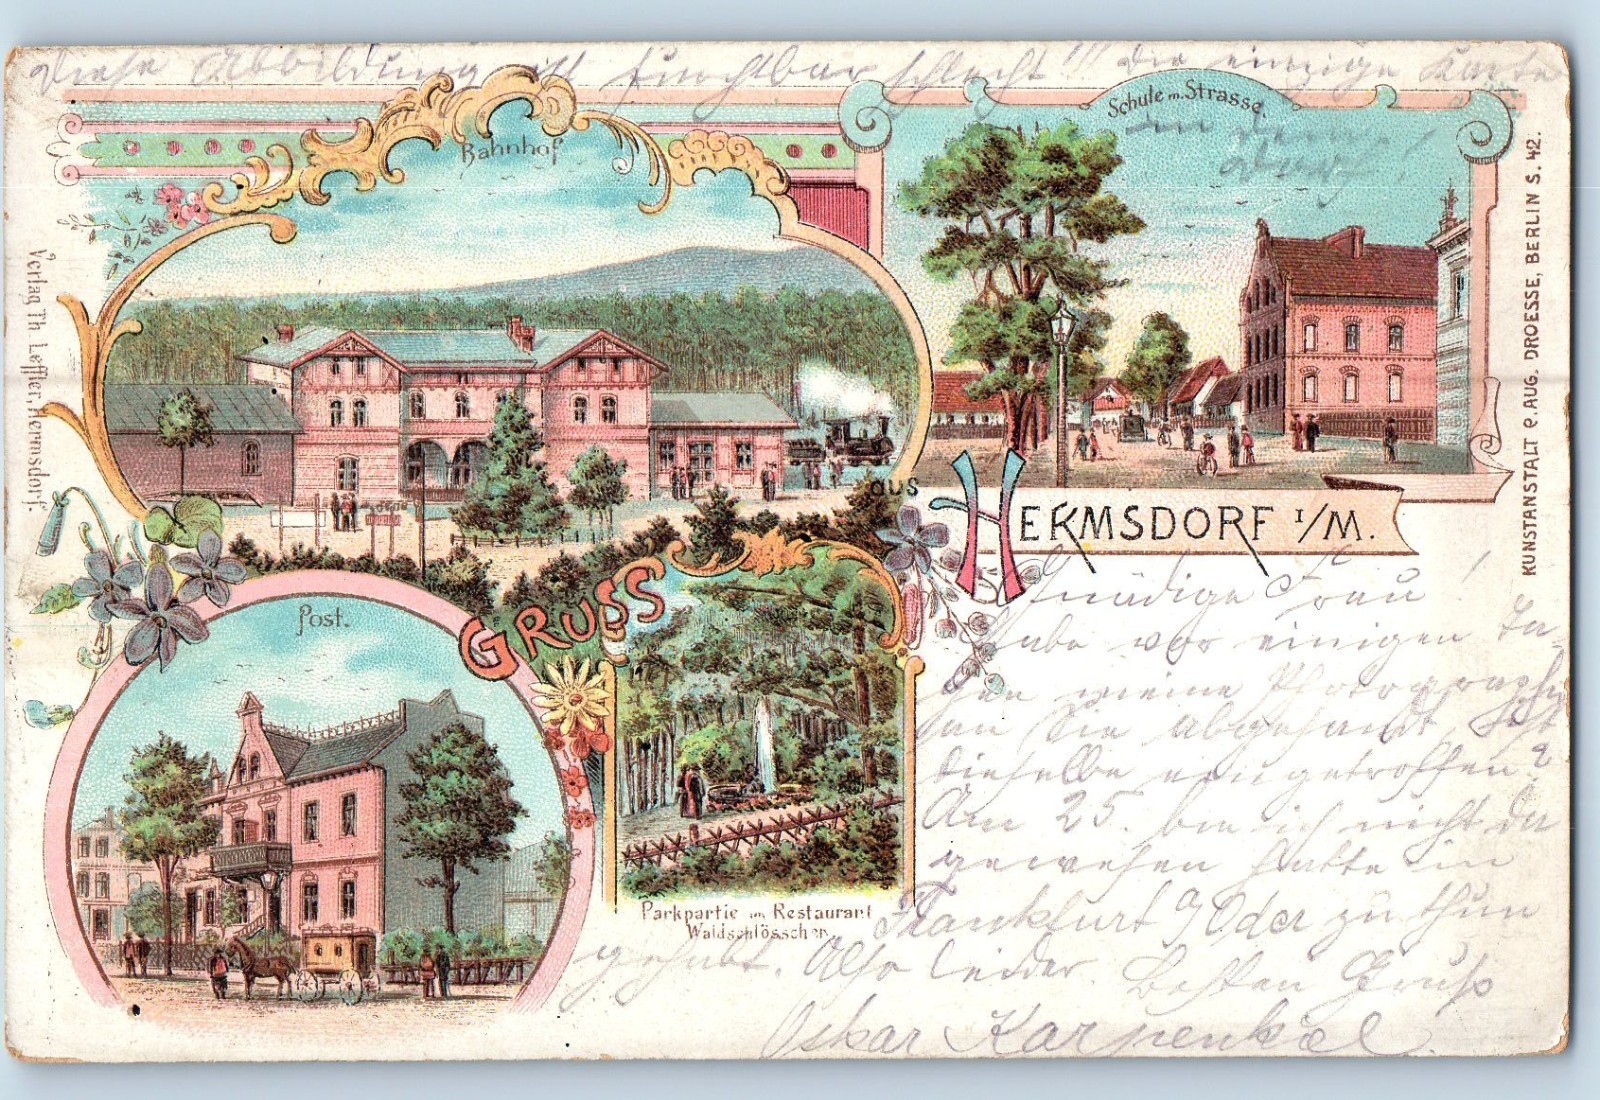 Diese Abbildung ist furchtbar schlecht!!! Die einzige Karte
in dem
Bahnhof
Schule m. Strasse.
Verlag Th. Leffler, Hermsdorf.
KUNSTANSTALT v. AUG. DROESSE, BERLIN S. 42.
GRUSS
aus
HERMSDORF I/M.
Post.
Parkpartie im Restaurant
Waldschlösschen.
Gnädige Frau!
Habe vor einigen Ta-
gen meine Photographie
an Sie abgesandt, ist
dieselbe eingetroffen?
Am 25. bin ich nicht da
gewesen hatte in
Frankfurt a/Oder zu thun
gehabt. Also leider. Besten Gruß
Oskar Karpenkiel